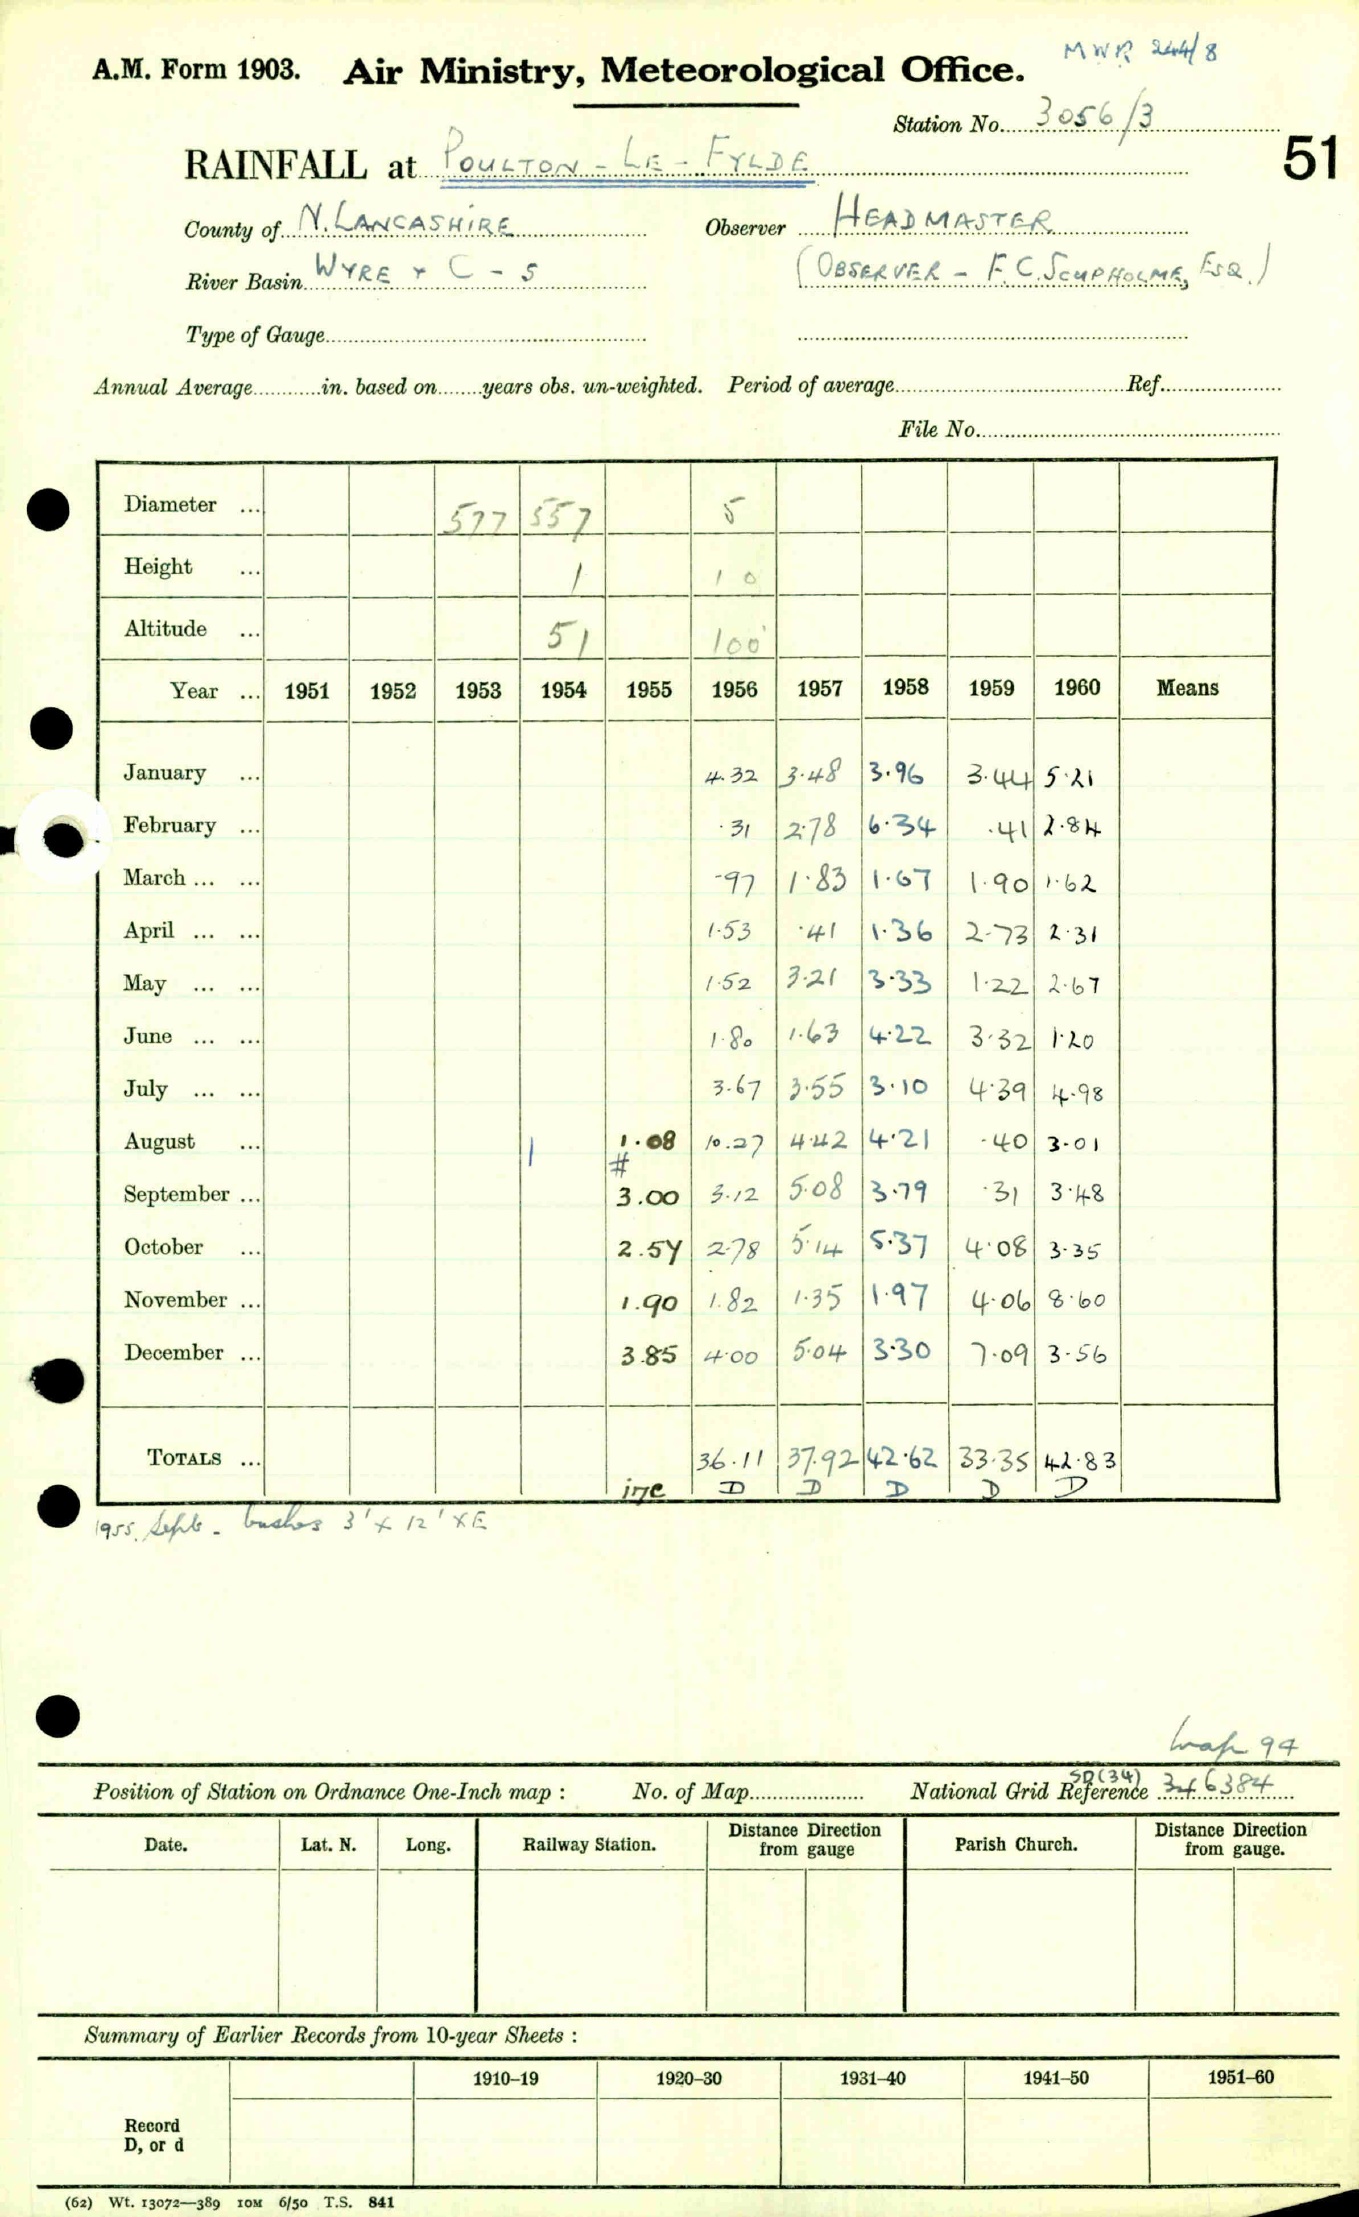 MWR 244/8
A.M. Form 1903. Air Ministry, Meteorological Office.
Station No. 3056/3
RAINFALL at POULTON - LE - FYLDE 51
County of N. LANCASHIRE Observer HEADMASTER
River Basin WYRE + C - 5 (OBSERVER - F.C. SCUPHOLME, ESQ.)
Type of Gauge
Annual Average in. based on years obs. un-weighted. Period of average Ref.
File No.
Diameter ... 577 557 5
Height ... 1 10
Altitude ... 51 100'
Year ... 1951 1952 1953 1954 1955 1956 1957 1958 1959 1960 Means
January ... 4.32 3.48 3.96 3.44 5.21
February ... .31 2.78 6.34 .41 2.84
March ... ... .97 1.83 1.67 1.90 1.62
April ... ... 1.53 .41 1.36 2.73 2.31
May ... ... 1.52 3.21 3.33 1.22 2.67
June ... ... 1.80 1.63 4.22 3.32 1.20
July ... ... 3.67 3.55 3.10 4.39 4.98
August ... 1.08 10.27 4.42 4.21 .40 3.01
#
September ... 3.00 3.12 5.08 3.79 .31 3.48
October ... 2.54 2.78 5.14 5.37 4.08 3.35
November ... 1.90 1.82 1.35 1.97 4.06 8.60
December ... 3.85 4.00 5.04 3.30 7.09 3.56
TOTALS ... 36.11 37.92 42.62 33.35 42.83
inc D D D D D
1955. Sept. bushes 3' x 12' x E
Map 94
SD(34)
Position of Station on Ordnance One-Inch map : No. of Map National Grid Reference 346384
Date. Lat. N. Long. Railway Station. Distance Direction from gauge Parish Church. Distance Direction from gauge.
Summary of Earlier Records from 10-year Sheets :
1910–19 1920–30 1931–40 1941–50 1951–60
Record
D, or d
(62) Wt. 13072—389 10M 6/50 T.S. 841